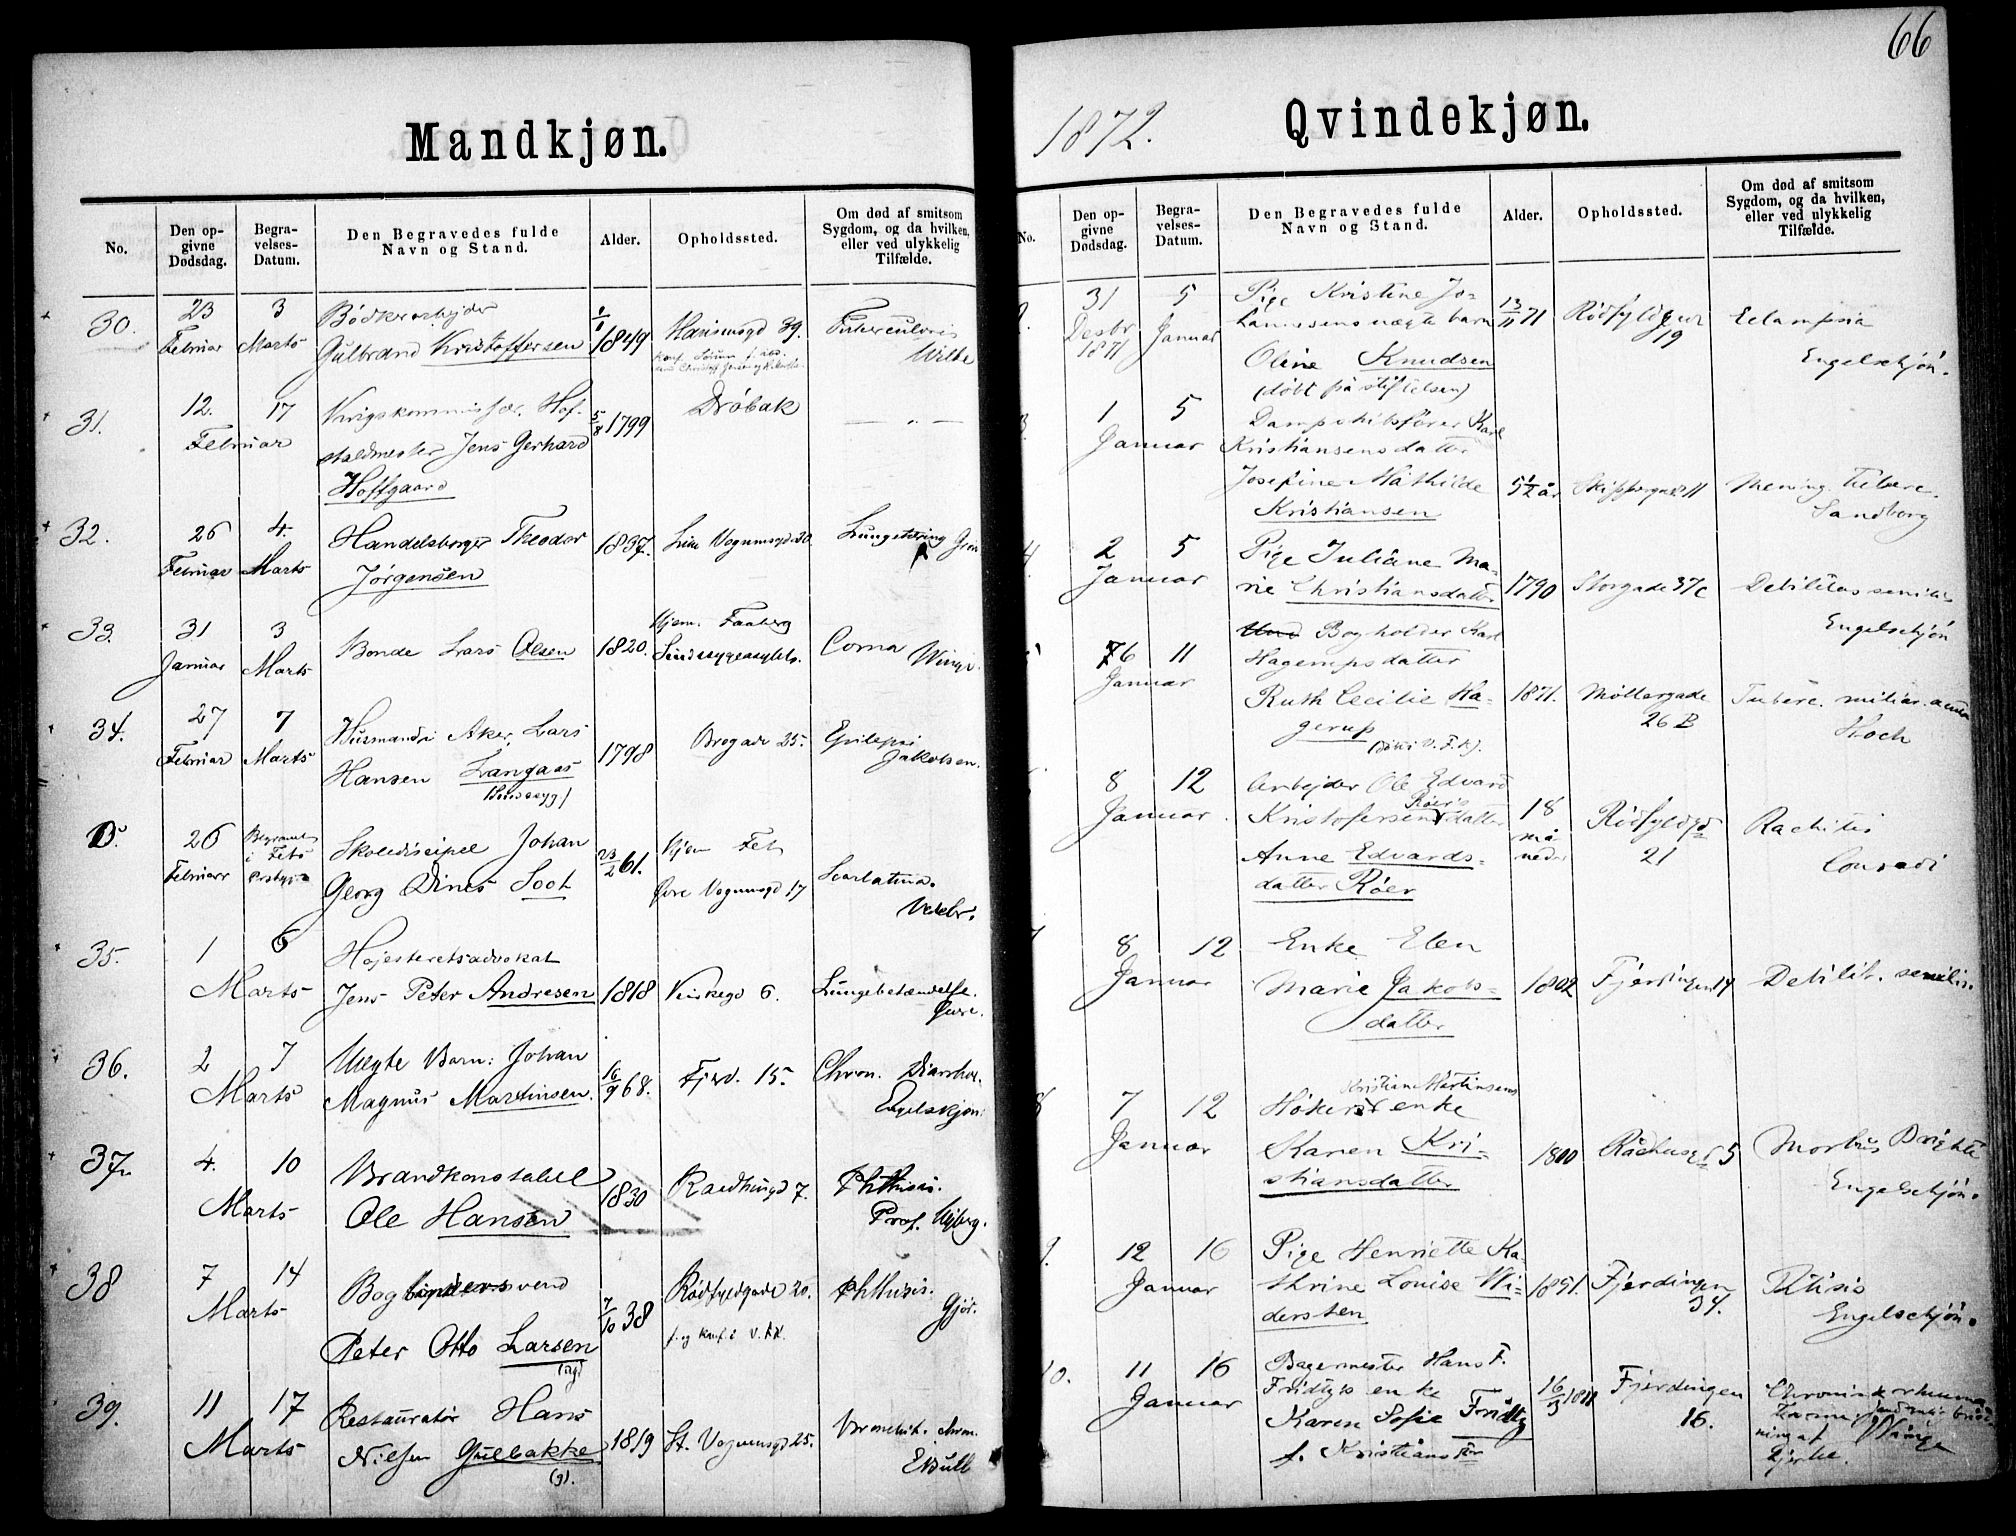 66
Mandkjøn.
No.
Den op-
givne
Dødsdag.
Begra-
velses-
Datum.
Den Begravedes fulde
Navn og Stand.
Alder.
Opholdssted.
Om død af smitsom
Sygdom, og da hvilken,
eller ved ulykkelig
Tilfælde.
30.
23
Februar
3
Marts
Bødkerarbejder
Gulbrand Kristoffersen
1849
39.
31.
12.
Februar
17
Krigskommissær, Hof-
staldmester Jens Gerhard
Hoffgaard
5/8 1799
Drøbak
32.
26
Februar
4.
Marts
Handelsborger Theodor
Jørgensen
1837.
Lille Vognmsgd 30
Lungetæring
33.
31
Januar
3
Marts
Bonde Lars Olsen
1820.
Hjem. Faaberg
Sindssygeasylet.
Coma
Winge.
34.
27
Februar
7
Marts
Husmand i Aker, Lars
Hansen Langaas
(Sindssyg)
1798
Brogade 25.
Epilepsi
Jakobsen.
D.
26
Februar
Begravet
i Fets
Skoledisipel Johan
Georg Dines Soot
23/2 61.
Hjem Fet
Øvre Vognmsgd 17
Scarlatina.
35.
1
Marts
6
Højesteretsadvokat
Jens Peter Andresen
1818
Kirkegd 6.
Lungebetændelse.
36.
2
Marts
7
Uægte Barn: Johan
Magnus Martinsen.
16/9 68.
Fjerd. 15.
Chron. Diarrhoe.
Engelskjøn.
37.
4.
Marts
10
Brandkonstabel
Ole Hansen
1830
Raadhusgd 7.
Phthisis.
Prof.
38
7
Marts
14
Bogbindersvend
Peter Otto Larsen
(ug)
7/10 38
Rødfyldgade 20.
Phthisis.
Gjør.
39.
11
Marts
17
Restauratør Hans
Nilsen Gulbakke
(g).
1819
St. Vognmsgd 25.
Bronchit. chron.
1872.
Qvindekjøn.
No.
Den op-
givne
Dødsdag.
Begra-
velses-
Datum.
Den Begravedes fulde
Navn og Stand.
Alder.
Opholdssted.
Om død af smitsom
Sygdom, og da hvilken,
eller ved ulykkelig
Tilfælde.
31
Desbr
1871
5
Januar
Pige Kristine Jo-
hannesens uægte barn
Oline Knudsen
(døbt på stiftelsen)
13/11 71
19
Eclampsia
Engelschjøn.
1
Januar
5
Dampskibsfører Karl
Kristiansens datter
Josefine Mathilde
Kristiansen
5 1/2 år
Skippergade 11
Mening. Tuberc.
Sandberg
2
Januar
5
Pige Juliane Ma-
rie Christiansdatter
1790
Storgade 37c
Debilitas senilis
Engelschjøn
6
Januar
11
Bogholder Karl
Hagerups datter
Ruth Cecilie Ha-
gerup
1871.
Møllergade
26 B
Tuberc. miliar. acuta
Koch
8
Januar.
12
Arbejder Ole Edvard
Kristofersen Røers datter
Anne Edvards-
datter Røer
18
må
neder
Rødfyldgd
21
Rachitis
Conradi
8
Januar
12
Enke Elen
Marie Jakobs-
datter
1802
Fjerdingen 14
Debilit. senilis.
7
Januar
12
Kristian Martinsens
Høker enke
Karen Kri-
stiansdatter
1800
Rådhusgd 5
Morbus Brightii
Engelschjøn.
9.
12
Januar
16
Pige Henriette Ka-
thrine Louise Wi-
dersten
1851.
Fjerdingen
34.
Ptisis
Engelschjøn.
10.
11
Januar
16
Bagermester Hans F.
Fridtys enke
Karen Sofie Fridty
f. Kristianster
16/3 1811
Fjerdingen
16.
Winge